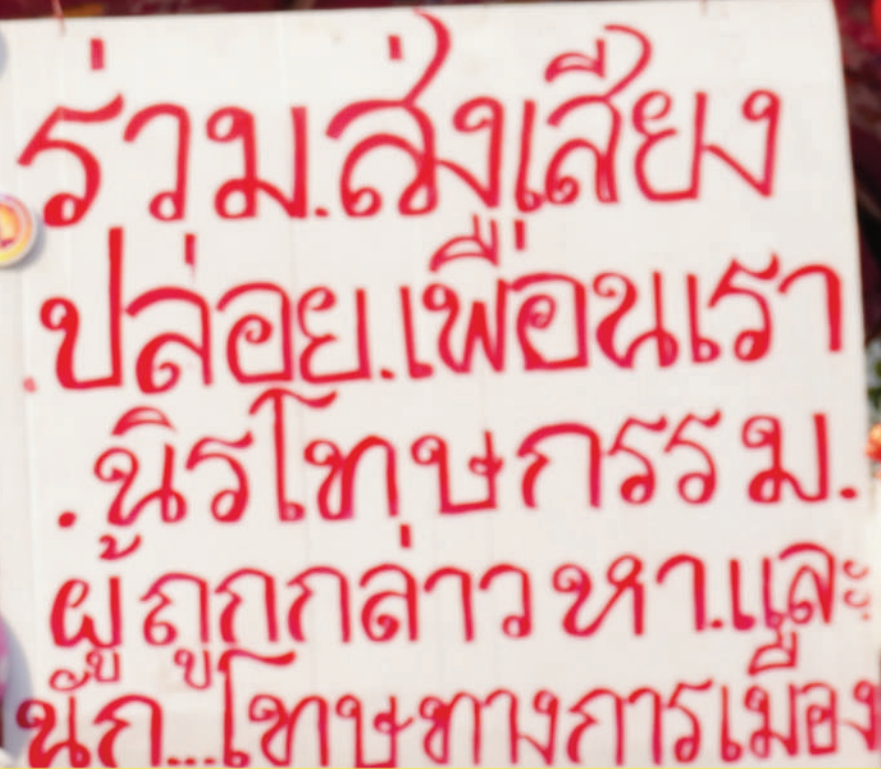 ร่วม.ส่งเสียง
.ปล่อย.เพื่อนเรา
.นิรโทษกรรม.
ผู้ถูกกล่าวหา.และ
นัก...โทษทางการเมือง